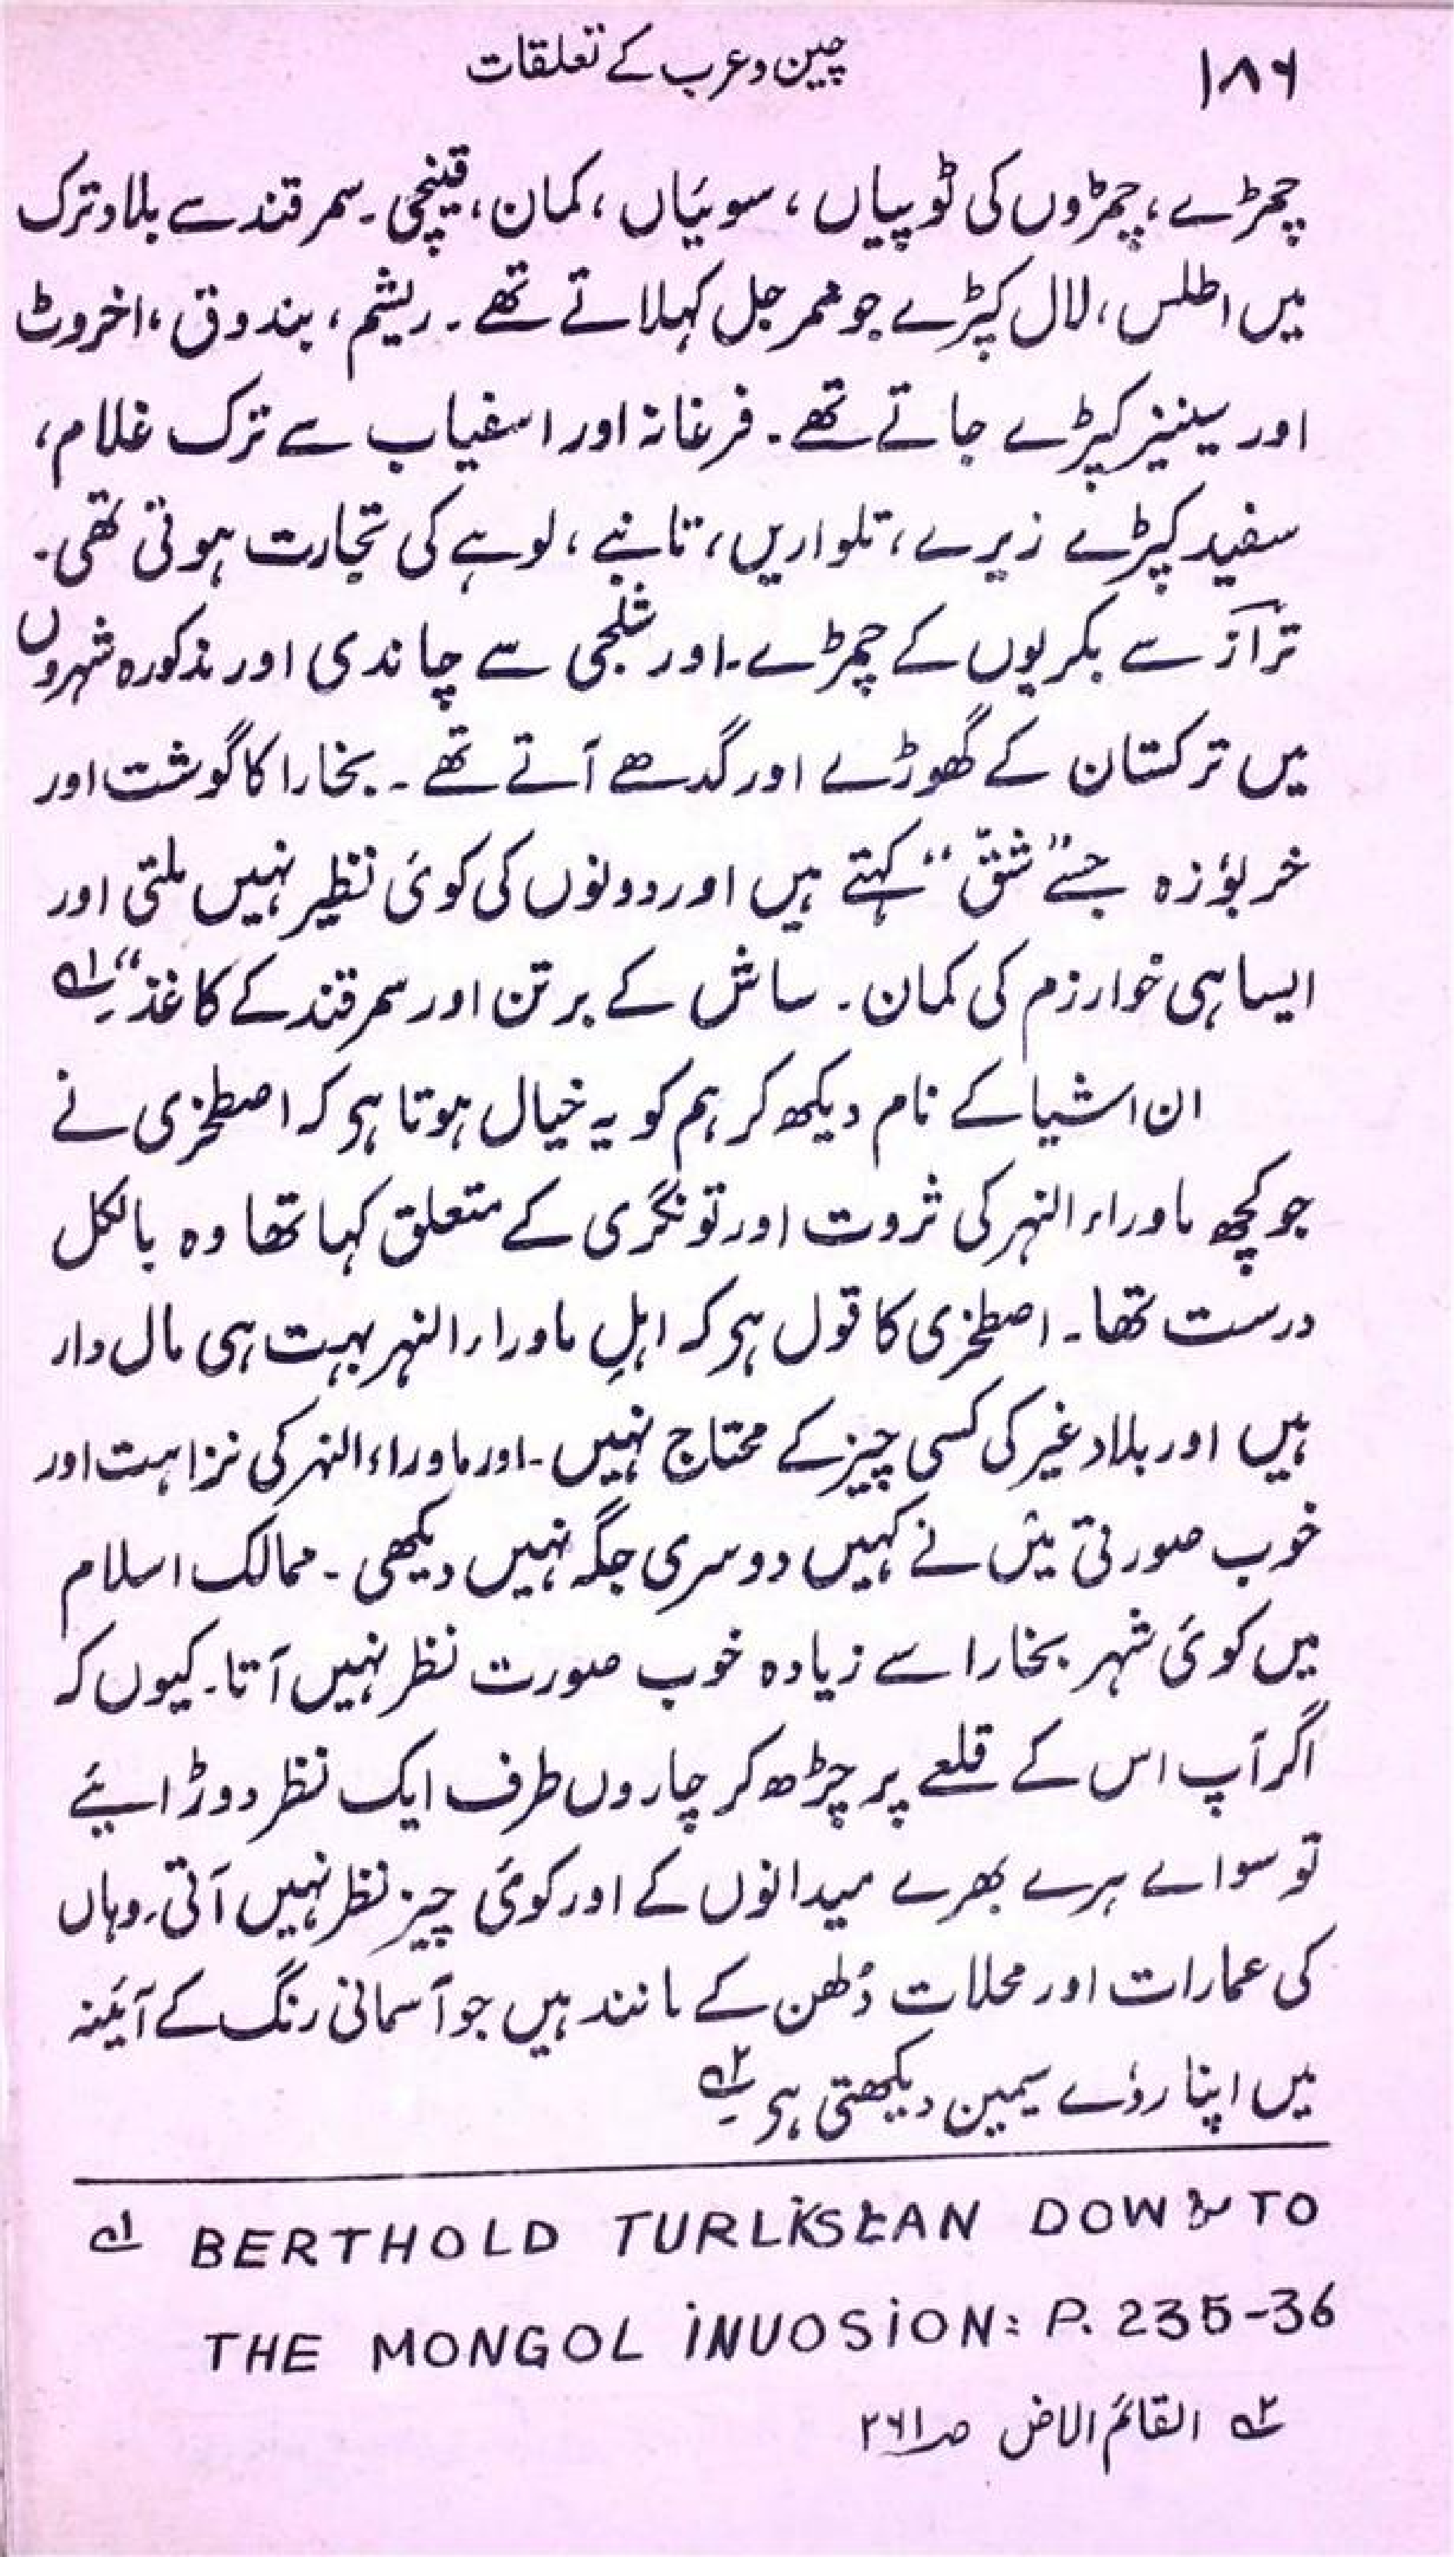 ۱۸۶
چین و عرب کے تعلقات
چمڑے، چمڑوں کی ٹوپیاں، سوئیاں، کمان، قینچی۔ سمرقند سے بلاد ترک
میں اطلس، لال کپڑے جو ممرجل کہلاتے تھے۔ ریشم، بندوق، اخروٹ
اور سینیز کپڑے جاتے تھے۔ فرغانہ اور اسفیاب سے ترک غلام،
سفید کپڑے زیرے، تلواریں، تانبے، لوہے کی تجارت ہوتی تھی۔
ترآز سے بکریوں کے چمڑے۔ اور شلجی سے چاندی اور مذکورہ شہروں
میں ترکستان کے گھوڑے اور گدھے آتے تھے۔ بخارا کا گوشت اور
خربؤزہ جسے ”شقّ“ کہتے ہیں اور دونوں کی کوئی نظیر نہیں ملتی اور
ایسا ہی خوارزم کی کمان۔ ساش کے برتن اور سمرقند کے کاغذ“ ۱؎
ان اشیا کے نام دیکھ کر ہم کو یہ خیال ہوتا ہو کہ اصطخری نے
جو کچھ ماوراء النہر کی ثروت اور تونگری کے متعلق کہا تھا وہ بالکل
درست تھا۔ اصطخری کا قول ہو کہ اہلِ ماوراء النہر بہت ہی مال دار
ہیں اور بلاد غیر کی کسی چیز کے محتاج نہیں۔ اور ماوراء النہر کی نزاہت اور
خوب صورتی میں نے کہیں دوسری جگہ نہیں دیکھی۔ ممالک اسلام
میں کوئی شہر بخارا سے زیادہ خوب صورت نظر نہیں آتا۔ کیوں کہ
اگر آپ اس کے قلعے پر چڑھ کر چاروں طرف ایک نظر دوڑائیے
تو سواے ہرے بھرے میدانوں کے اور کوئی چیز نظر نہیں آتی۔ وہاں
کی عمارات اور محلات دُلھن کے مانند ہیں جو آسمانی رنگ کے آئینہ
میں اپنا روٗے سیمین دیکھتی ہو ۲؎
۱؎ BERTHOLD TURLKSTAN DOWN TO
THE MONGOL INUOSION: P. 235-36
۲؎ القائم الاض صـ۲۶۱